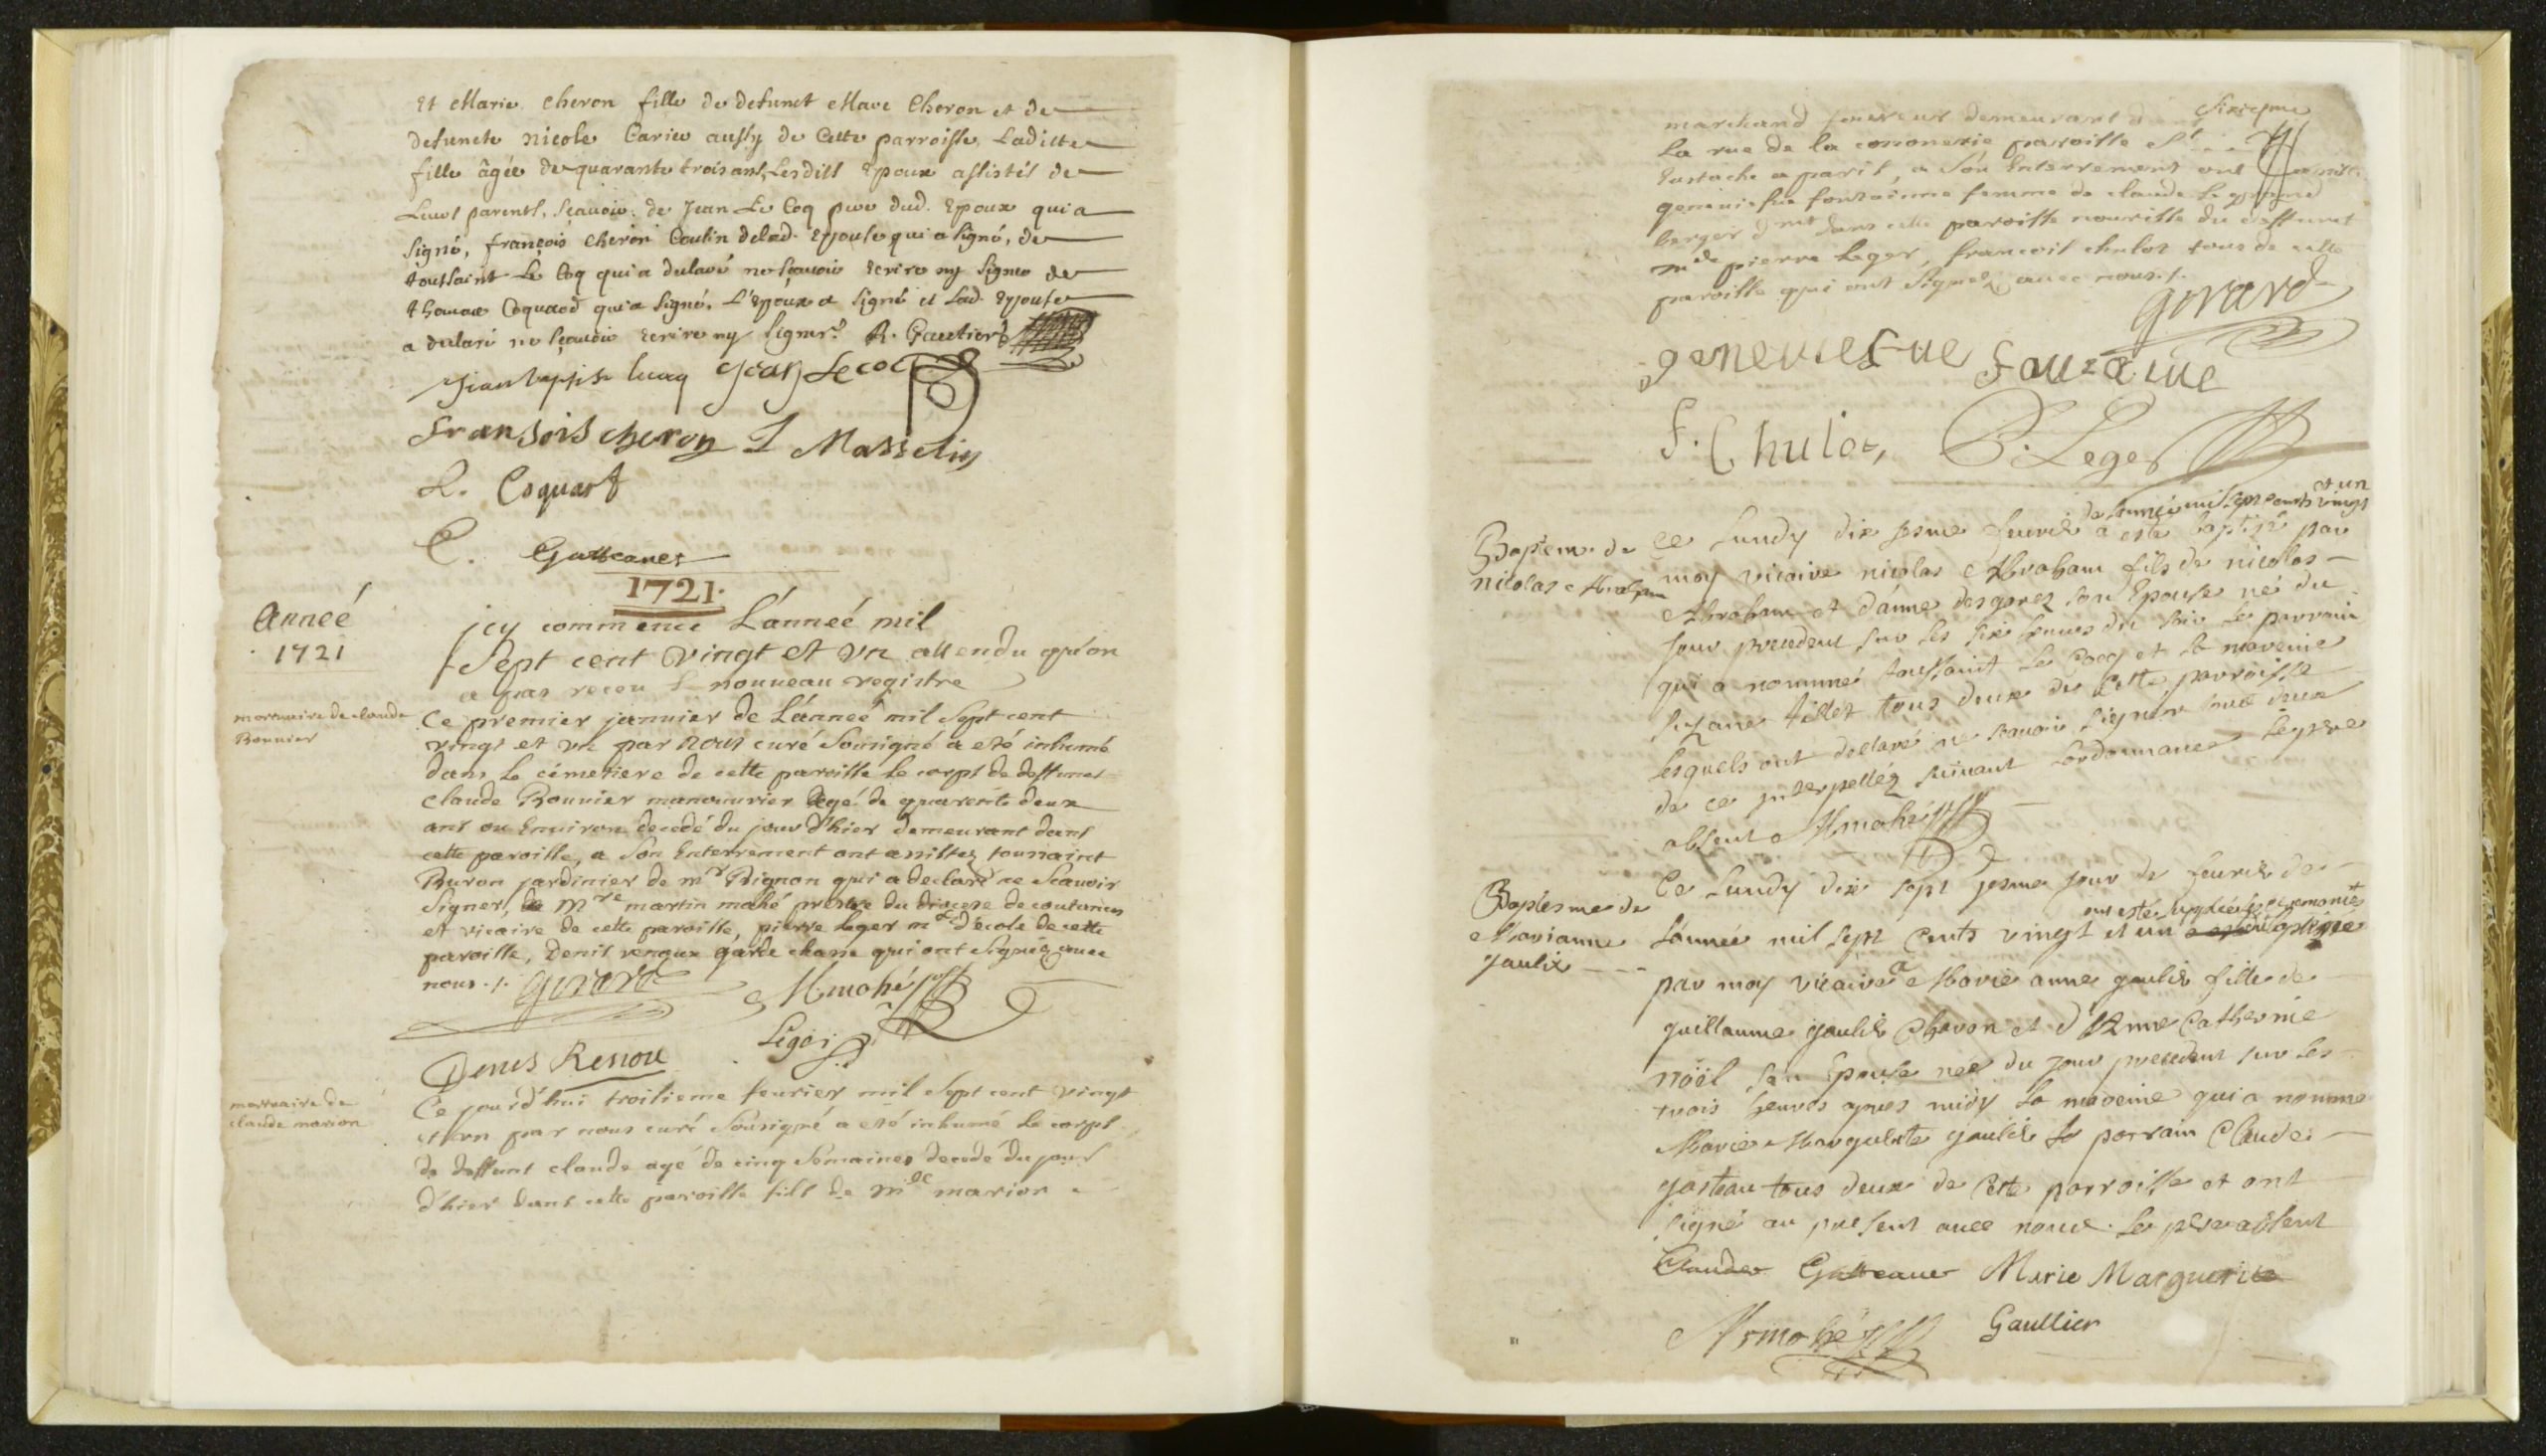 Et Marie Cheron fille de defunct Marc Cheron et de
defuncte Nicole Carieu aussy de Cette parroisse, Laditte
fille âgée de quarante trois ans, Lesdits Epoux assistés de
Leurs parents, Sçavoir de Jean Le Coq pere dud. Epoux qui a
Signé, françois Cheron Cousin delad. Epouse qui a Signé, de
toussaint Le Coq qui a declaré ne sçavoir Ecrire ny Signer de
thomas Coquard qui a Signé. L'Epoux a Signé et Lad. Epouse
a declaré ne sçavoir Ecrire ny Signer. R. Gautier
Jean Lecocq
fransois cheron Masselin
Coquart
Gasteaues
1721.
Anneé
1721
jcy commence L'anneé mil
Sept cent vingt et vn attendu qu'on
a pas receu le nouveau registre
mortuaire de claude
Bonnier
Ce premier januier de L'anneé mil Sept cent
vingt et vn par nous curé Sousigné a eté inhumé
dans le cémetiere de cette paroisse le corps de deffunct
claude Bonnier manouurier agé de quarente deux
ans ou Enuiron decedé du jour d'hier demeurant dans
cette paroisse, a Son Enterrement ont assistez toussaint
Buron jardinier de mr Bignon qui a declaré ne Scauoir
Signer, de Mre martin mahé prestre du diocese de coutances
et vicaire de cette paroisse, pierre leger me d'ecole de cette
paroisse, Denis renoux garde chasse qui ont Signéz auec
nous ./. Girard M. mahé
Legei
Denis Renou
mortuaire de
claude marion
Ce jourd'hui troisieme feurier mil Sept cent vingt
et vn par nous curé Sousigné a eté inhumé le corps
de deffunt claude agé de cinq Semaines decedé du jour
d'hier dans cette paroisse fils de marion
Sixiesme
marchand demeurant
la rue de la paroisse St
Eustache a paris, a Son Enterrement ont assisté
geneuiefue fontainne femme de claude
berger dans cette paroisse nourisse du deffunct
pierre Leger, francois chulot tous de cette
paroisse qui ont Signez auec nous ./.
Girard
geneuiefue fontaine
F. Chulot, P. Leger
et un
de l'année mil sept cents vingt
Baptem. de
nicolas Abraham
Ce Lundy dix feurier a esté baptisé par
moy vicaire nicolas Abraham fils de nicolas
Abraham et d'anne desgorez son Epouse né du
jour precedent sur les six heures du soir le parrain
qui a nommé toussaint Le Cocq et la mareine
Suzane tillet tous deux de Cette parroisse
lesquels ont declaré ne scauoir signer tous deux
de ce jnterpelléz suiuant Lordonnance le pere
absent M mahé
Baptesme de
Marianne
gaulie
Ce Lundy dix sept jour de feurier de
ont esté supleés les ceremonies
l'année mil sept Cents vingt et un
par moy vicaire a Marie anne gaulier fille de
guillaume gaulier Charon et d'Anne Catherine
nöel son Epouse née du jour precedent sur les
trois heures apres midy la mareine qui a nommé
Marie Marguerite gaulier le parrain Claude
gasteau tous deux de Cette parroisse et ont
signé au present auec nous. Le pere absent
Claude Gasteaue Marie Marguerite
M mahé Gaullier